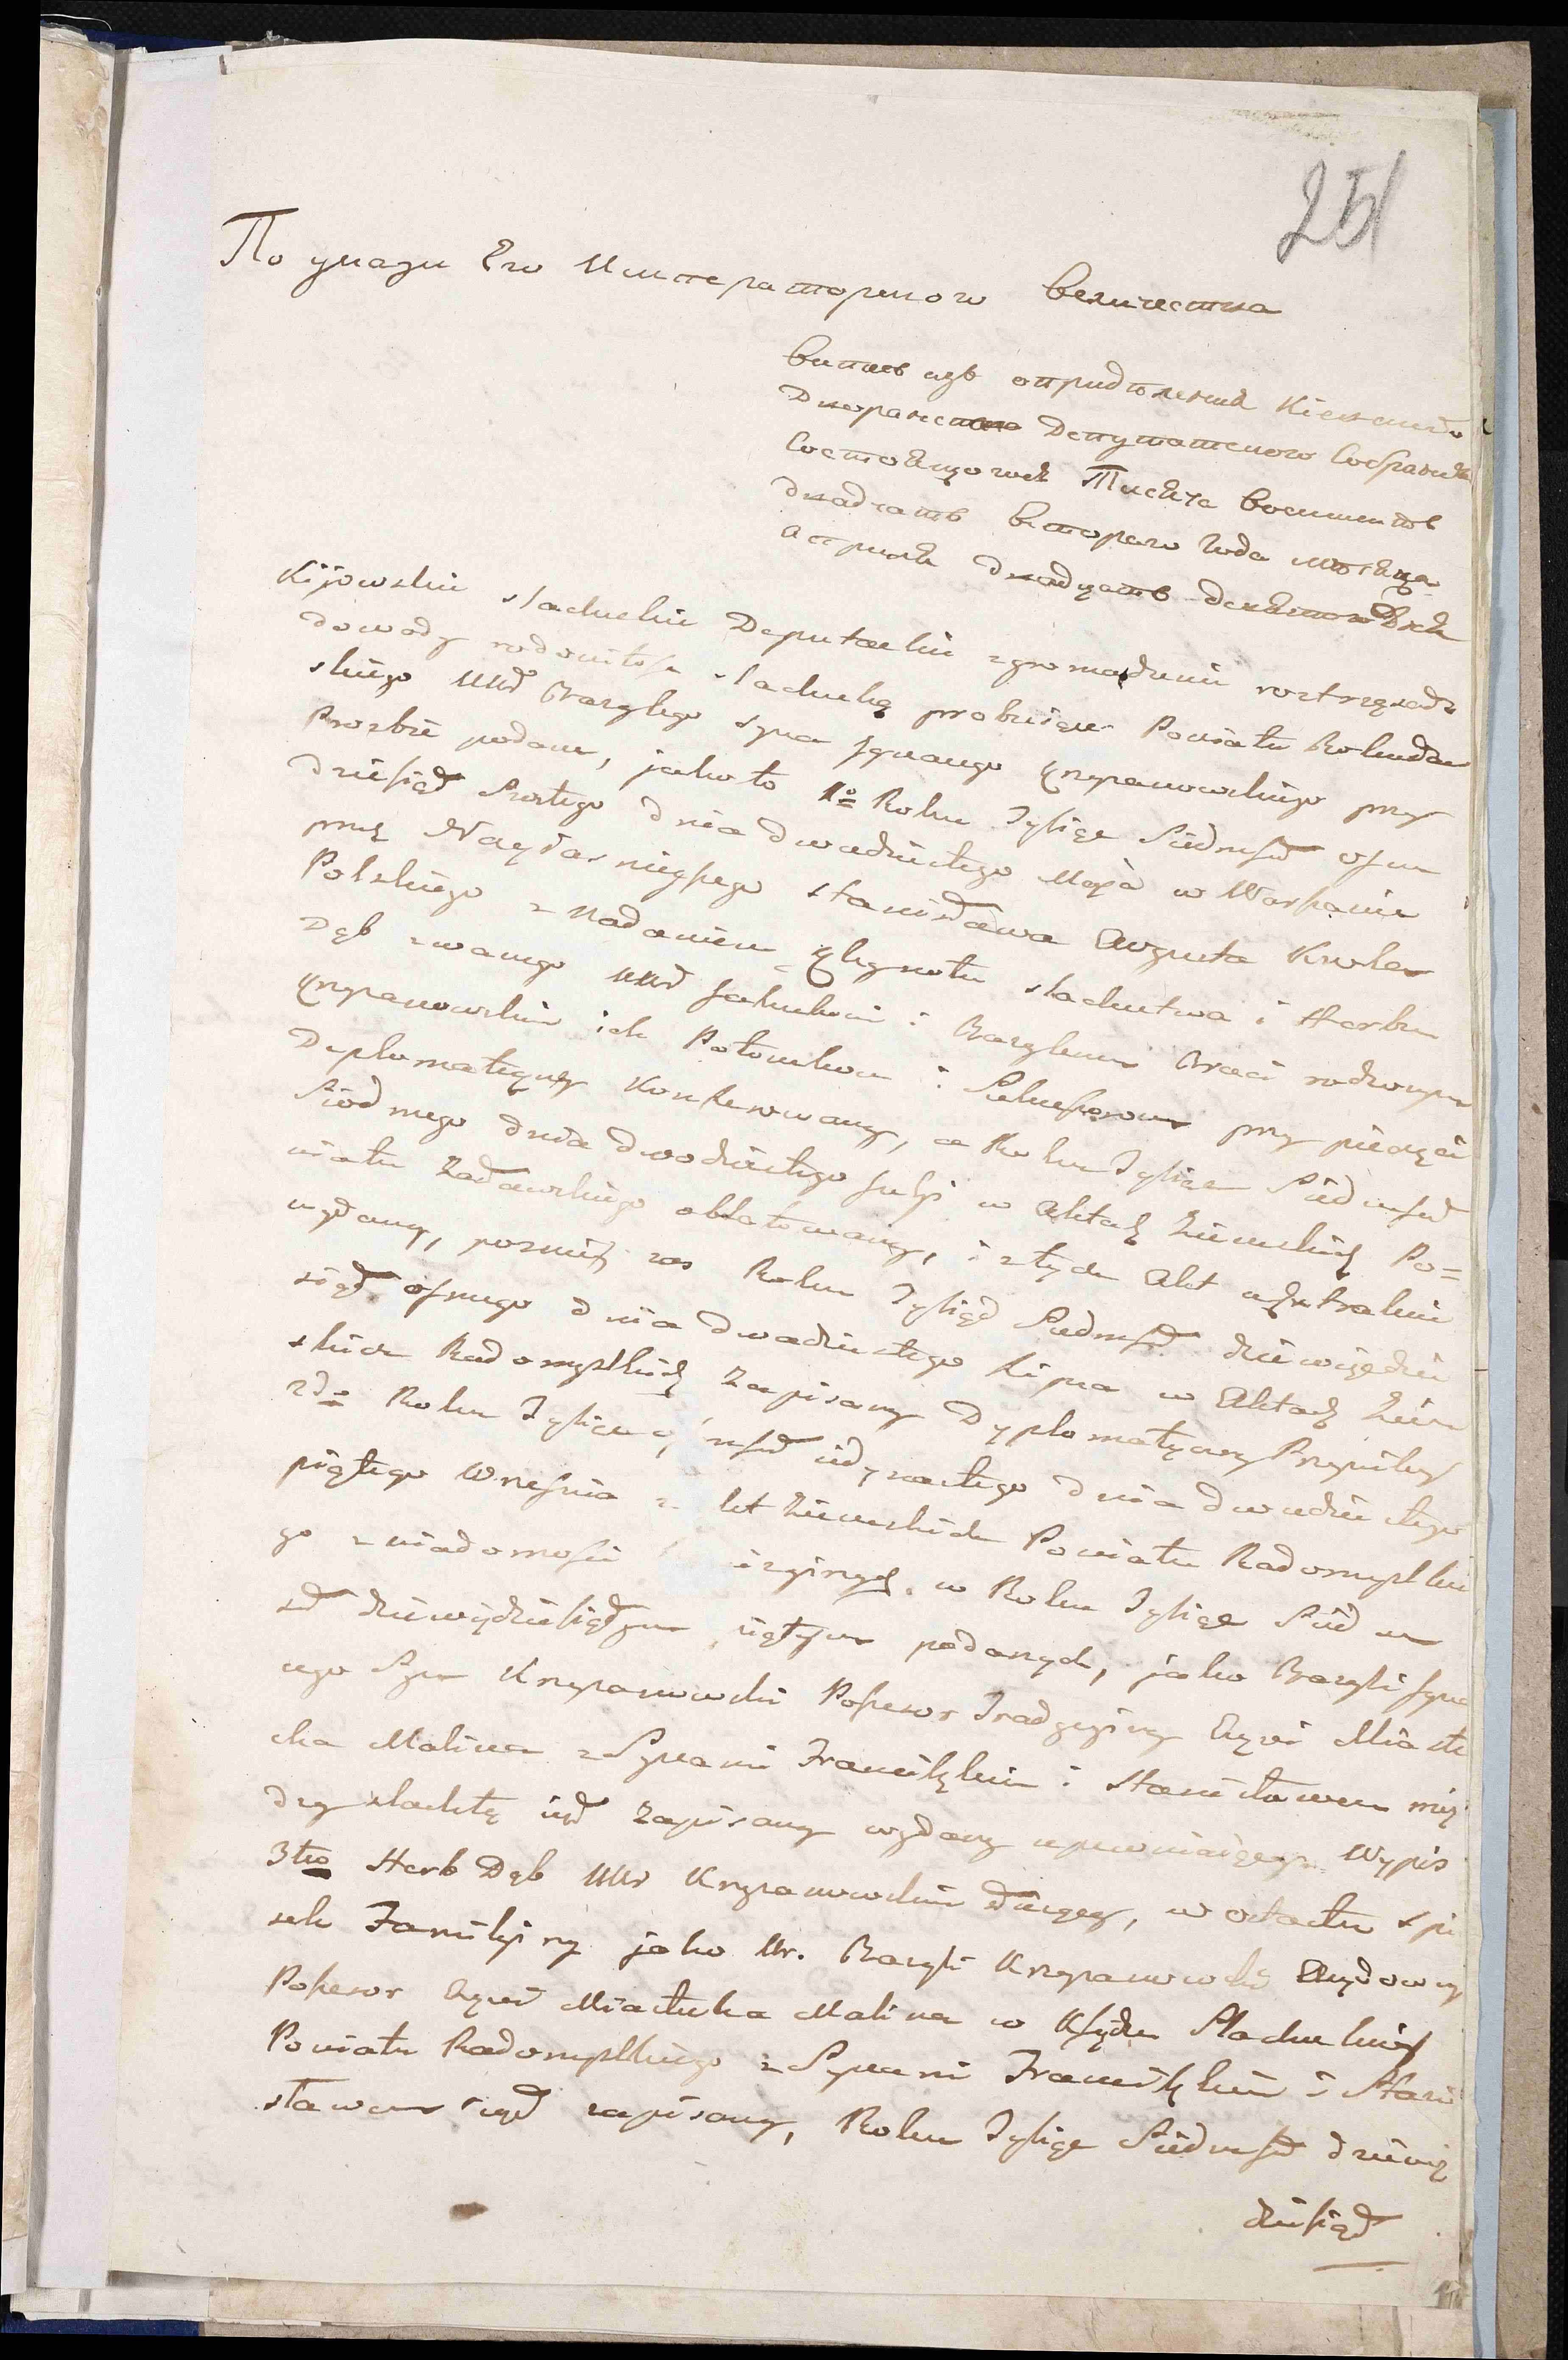 251
По указу Его Императорского Величества
Выпись изъ опридѣления Кіевского
Дворанства Депутатского Собрания
Состоящогося Тисяча восимсотъ
двадцать второго Года мѣсяца
априля двадцать девятого дня
Kijowskie szlacheckie Deputackie zgromadzenie roztrząsając
dowody rodowitość szlachecką probuiące Powiatu
skiego UUr Bazylego syna Ignacego Krzyzanowskiego przy
Prozbie podane, jako to 1o Roku Tysiąc Siedmset osm
dziesiąt Szostego dnia dwudziestego Maja w Warszawie
przez Nayiasnieyszego Stanisława Augusta Krola
Polskiego z nadaniem Kleynotu szlachectwa i Herbu
Dąb zwanego UUr Jakubowi i Bazylemu Braci rodzonym
Krzyzanowskim ich Potomkom i Sukcessorom przy pieczęci
Deplomatyczny Konferowany, a Roku Tysiąc Siedmset
Siodmego dnia dwudziestego Julji w Aktach Ziemskich Po=
wiatu oblatowany, i z tych Akt extraktem
wydany, pozniey zas Roku Tysiąc Siedmset dziewiędzie
siąt osmego dnia dwudziestego Lipca w Aktach Ziem
skich Radomyslskich Zapisany Dyplomatyczny Przywiley
2do Roku Tysiąc setiedynastego dnia dwudziestego
piątego Wrzesnia z Akt Ziemskich Powiatu Radomyslskie
go z wiadomosci w Roku Tysiąc Siedm
set dziewiędziesiątym piątym podanych, jako Bazyli Igna
cego Syn Krzyzanowski Possesor Tradycyiny Części Miaste
cka Malina z Synami Franciszkiem i Stanisławem mię
dzy szlachtę iest Zapisany wydany upewniaiący Wypis
3tio Herb Dąb UUr Krzyzanowskim służący, w ostatku spi
sek Familyiny jako Ur. Bazyli Krzyzanowski
Possesor Części Miasteczka Malina w Księdze Szlacheckiey
Powiatu Radomyslskiego z Synami Franciszkiem i Stani
sławem iest zapisany, Roku Tysiąc Siedmset dziewię
dziesiąt